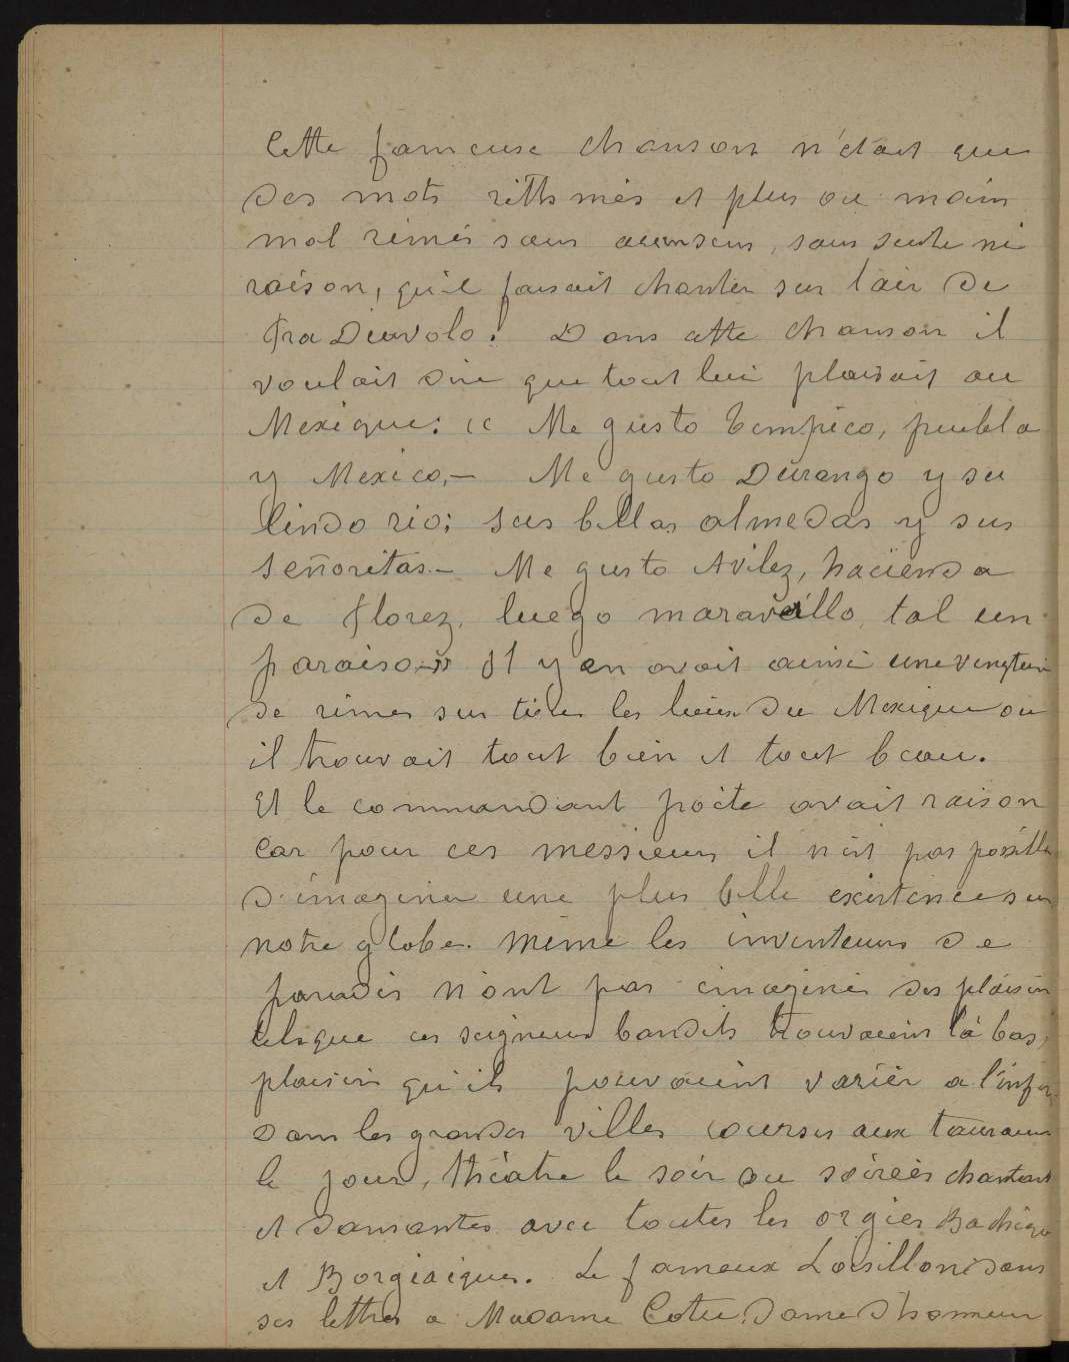 Cette fameuse chanson n'était que
des mots rithmés et plus ou moin
mal rimés sans aucun sens, sans suite ni
raison, qu'il faisait chanter sur l'air de
Fra Diavolo. Dans cette chanson il
voulait dire que tout lui plaisait au
Mexique: « Me gusto Tempico, puebla
y Mexico,– Me gusto Durango y su
lindo rio; sus bellas almedas y sus
señoritas.– Me gusto Avilez, hacienda
de florez, luego maravillo, tal un
paraiso.» Il y en avait ainsi une vingtaine
de rimes sur tous les lieux du Mexique ou
il trouvait tout bien et tout beau.
Et le commandant poète avait raison
car pour ces messieurs il n'est pas possible
d'imaginer une plus belle existence sur
notre globe. même les inventeurs de
paradis n'ont pas imaginé des plaisirs
tels que ces seigneurs bandits trouvaient là bas,
plaisirs qu'ils pouvaient varièr a l'infini
Dans les grandes villes courses aux taureaux
le jour, théatre le soir ou soirées chantant
et dansantes avec toutes les orgies Bachiqu
et Borgiaïques. Le fameux Loisillon dans
ses lettres a Madame Cotu dame d'honneur